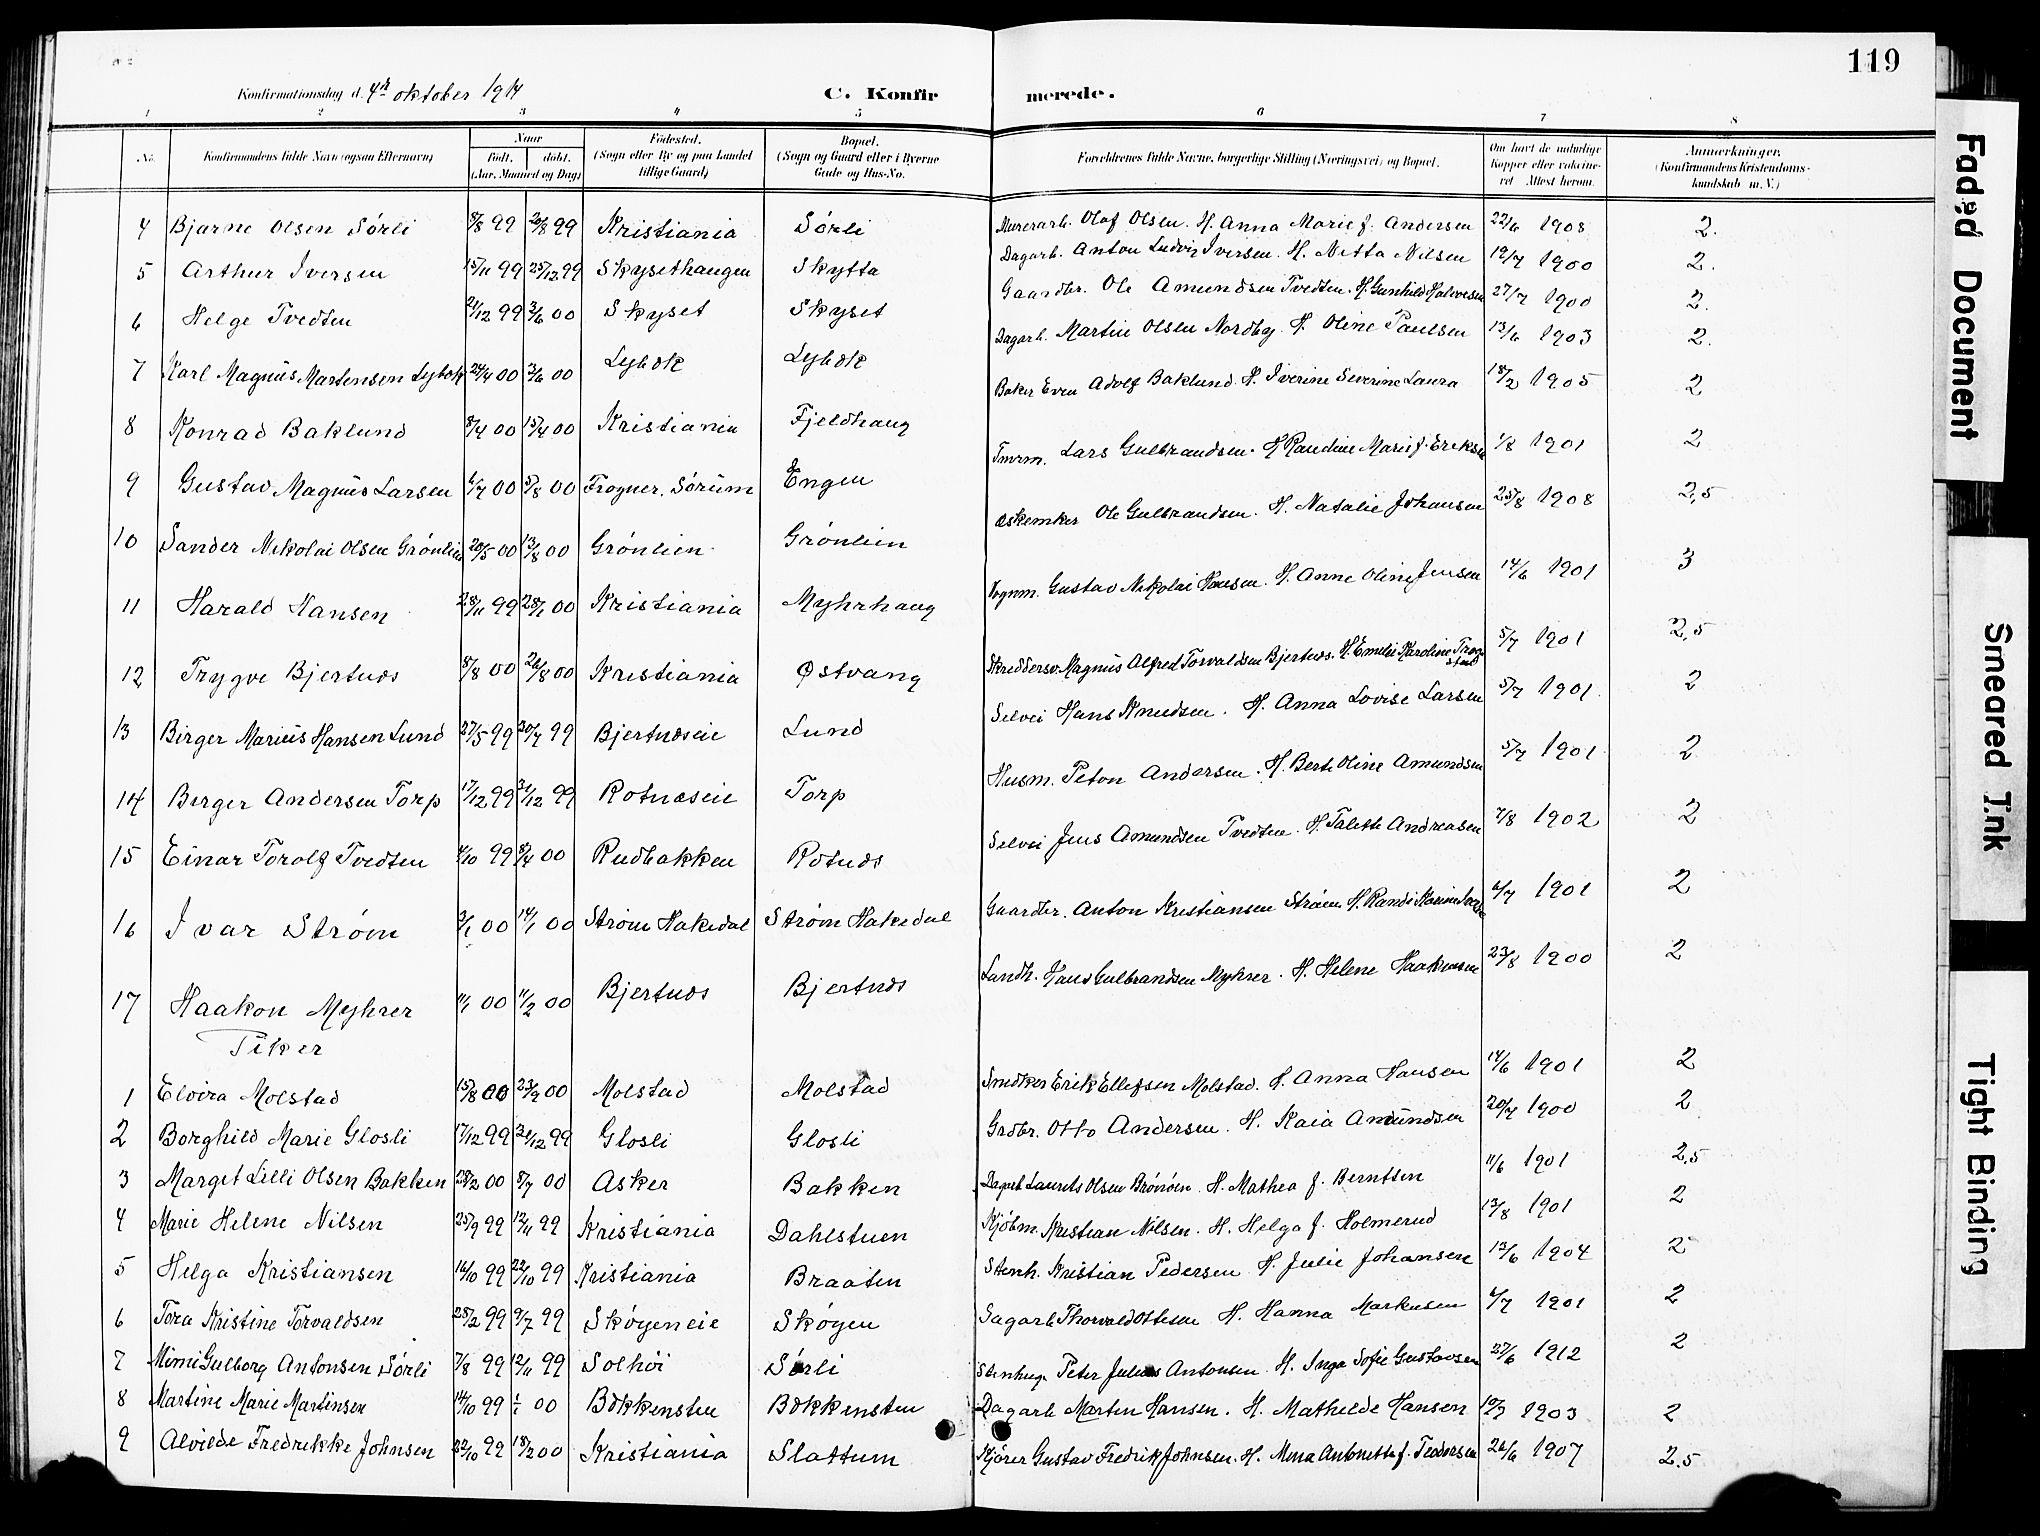 119
Konfirmationsdag d. 4de oktober 1914 C. Konfirmerede.
1 2 3 4 5 6 7 8
No. Konfirmandens fulde Navn (ogsaa Efternavn) Naar født. døbt. (Aar, Maaned og Dag) Fødested. (Sogn eller By og paa Landet tillige Gaard) Bopæl. (Sogn og Gaard eller i Byerne Gade og Hus-No. Forældrenes fulde Navne, borgerlige Stilling (Næringsvei) og Bopæl. Om havt de naturlige Kopper eller vaccineret Attest herom. Anmærkninger. (Konfirmandens Kristendomskundskab m. V.)
4 Bjarne Olsen Sørli 8/8 99 20/8 99 Kristiania Sørli Murerarb. Olaf Olsen. H. Anna Marie f. Andersen 22/6 1908 2.
5 Arthur Iversen 15/11 99 25/12 99 Skysethaugen Skytta Dagarb. Anton Ludvig Iversen. H. Netta Nilsen 12/7 1900 2.
6 Helge Tvedten 21/12 99 3/6 00 Skyset Skyset Gaardbr. Ole Amundsen Tvedten. H. Gunhild Halvorsen 27/7 1900 2.
7 Karl Magnus Martensen Lybæk 24/4 00 3/6 00 Lybæk Lybæk Dagarb. Martin Olsen Nordby. H. Oline Paulsen 13/6 1903 2.
8 Konrad Baklund 8/4 00 15/4 00 Kristiania Fjeldhaug Baker Even Adolf Baklund. H. Iverine Severine Laura 18/2 1905 2
9 Gustav Magnus Larsen 6/7 00 5/8 00 Frogner. Sørum Engen Tmrm. Lars Gulbrandsen. H. Randine Marie f. Eriksen 1/8 1901 2
10 Sander Nikolai Olsen Grønlien 20/5 00 13/8 00 Grønlien Grønlien Æskemker Ole Gulbrandsen. H. Natalie Johansen 25/8 1908 2,5
11 Harald Hansen 28/11 99 28/1 00 Kristiania Myhrhaug Vognm. Gustav Nikolai Hansen. H. Anne Oline Jensen 14/6 1901 3
12 Trygve Bjertnæs 8/8 00 26/8 00 Kristiania Østvang Skreddersv. Magnus Alfred Torvaldsen Bjertnæs. H. Emilie Karoline Trogstad 5/7 1901 2,5
13 Birger Marius Hansen Lund 27/5 99 30/7 99 Bjertnæseie Lund Selvei Hans Knudsen. H. Anna Lovise Larsen 5/7 1901 2
14 Birger Andersen Torp 17/12 99 31/12 99 Rotnæseie Torp Husm. Peton Andersen. H. Berte Oline Amundsen 5/7 1901 2
15 Einar Torolf Tvedten 4/10 99 8/4 00 Rudbakken Rotnæs Selvei Jens Amundsen Tvedten. H. Talette Andreasen 7/8 1902 2
16 Ivar Strøm 3/1 00 14/1 00 Strøm Hakedal Strøm Hakedal Gaardbr. Anton Kristiansen Strøm. H. Randi Karine 6/7 1901 2
17 Haakon Myhrer 11/1 00 11/2 00 Bjertnæs Bjertnæs Landh. Hans Gulbrandsen Myhrer. H. Helene Haakensen 23/8 1900 2
Piker
1 Elvira Molstad 15/8 00 23/9 00 Molstad Molstad Smedker Erik Ellefsen Molstad. H. Anna Hansen 14/6 1901 2
2 Borghild Marie Glosli 17/12 99 31/12 99 Glosli Glosli Grdbr. Otto Andersen. H. Kaia Amundsen 20/7 1900 2
3 Margit Lilli Olsen Bakken 28/2 00 8/7 00 Asker Bakken Laurits Olsen H. Mathea f. Berntsen 11/6 1901 2.5
4 Marie Helene Nilsen 25/9 99 12/11 99 Kristiania Dahlstuen Kjøbm. Kristian Nilsen. H. Helga f. Holmerud 13/8 1901 2
5 Helga Kristiansen 16/10 99 22/10 99 Kristiania Braaten Stenh. Kristian Pedersen H. Julie Johansen 13/6 1904 2
6 Tora Kristine Torvaldsen 25/2 99 9/7 99 Skøyeneie Skøyen Sagarb Thorvald Ottesen H. Hanna Markusen 6/7 1901 2
7 Mimi Gulborg Antonsen Sørli 7/8 99 12/11 99 Solhøi Sørli Stenhug. Peter Julius Antonsen. H. Inga Sofie Gustavsen 27/6 1912 2
8 Martine Marie Martinsen 14/10 99 1/1 00 Bækkensten Bækkensten Dagarb Marten Hansen. H. Mathilde Hansen 10/7 1903 2
9 Alvilde Fredrikke Johnsen 22/10 99 18/2 00 Kristiania Slattum Kjører Gustav Fredrik Johnsen. H. Mina Antonette f. Pedersen 26/6 1907 2.5
Faded Document
Smeared Ink
Tight Binding